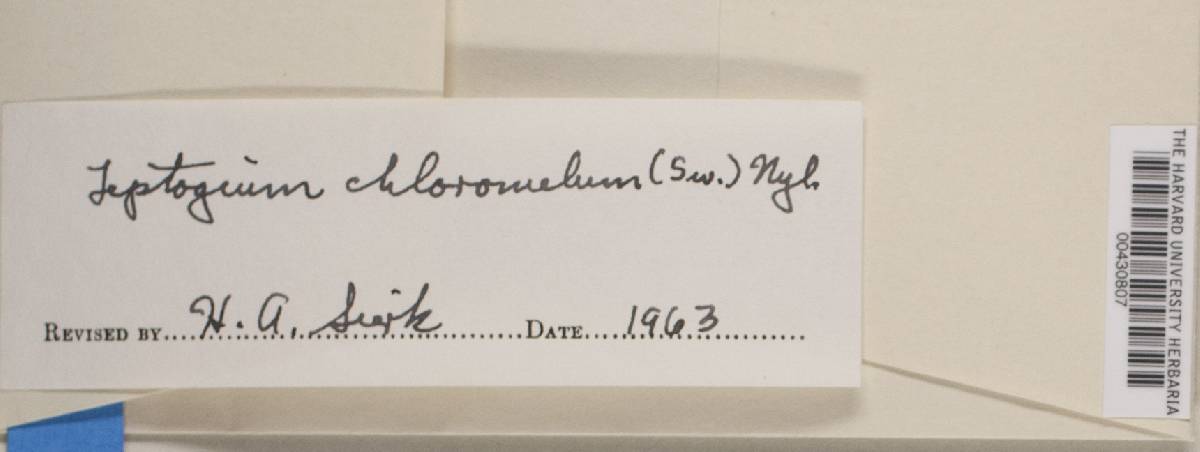 Leptogium chloromelum (Sw.) Nyl.
REVISED BY....H. A. Sierk..........DATE....1963..........
THE HARVARD UNIVERSITY HERBARIA
00430807